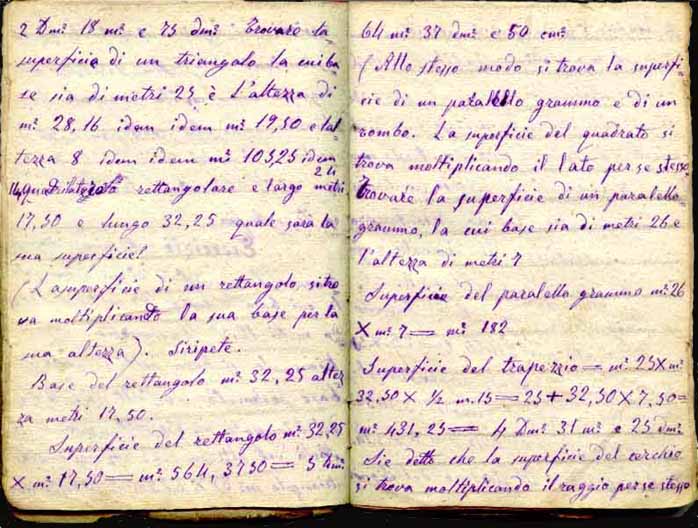 2 Dm². 18 m². e 75 dm². Trovare la
superficie di un triangolo la cui ba-
se sia di metri 25 è L'altezza di
m². 28,16 idem idem m². 19,50 e l'al-
tezza 8 idem idem m². 105,25 idem
24
14, quadrilatero rettangolare e largo metri
17,50 e lungo 32,25 quale sarà la
sua superficie!
(La superficie di un rettangolo si tro
va moltiplicando la sua base per la
sua altezza). Si ripete.
Base del rettangolo m². 32,25 altez
za metri 17,50.
Superficie del rettangolo m². 32,25
X m². 17,50 = m². 564,3750 = 5 Dm².
64 m². 37 dm². e 50 cm².
(Allo stesso modo si trova la superfi-
cie di un parallelo grammo e di un
rombo. La superficie del quadrato si
trova moltiplicando il lato per se stesso
Trovare la superficie di un paralello
grammo, la cui base sia di metri 26 e
l'altezza di metri 7
Superficie del paralello grammo m². 26
X m². 7 = m². 182
Superficie del trapezzio = m². 25 X m².
32,50 X ½ m. 15 = 25 + 32,50 X 7,50 =
m². 431,25 = 4 Dm². 31 m². e 25 dm².
Sie detto che la superficie del cerchio
si trova moltiplicando il raggio per se stesso